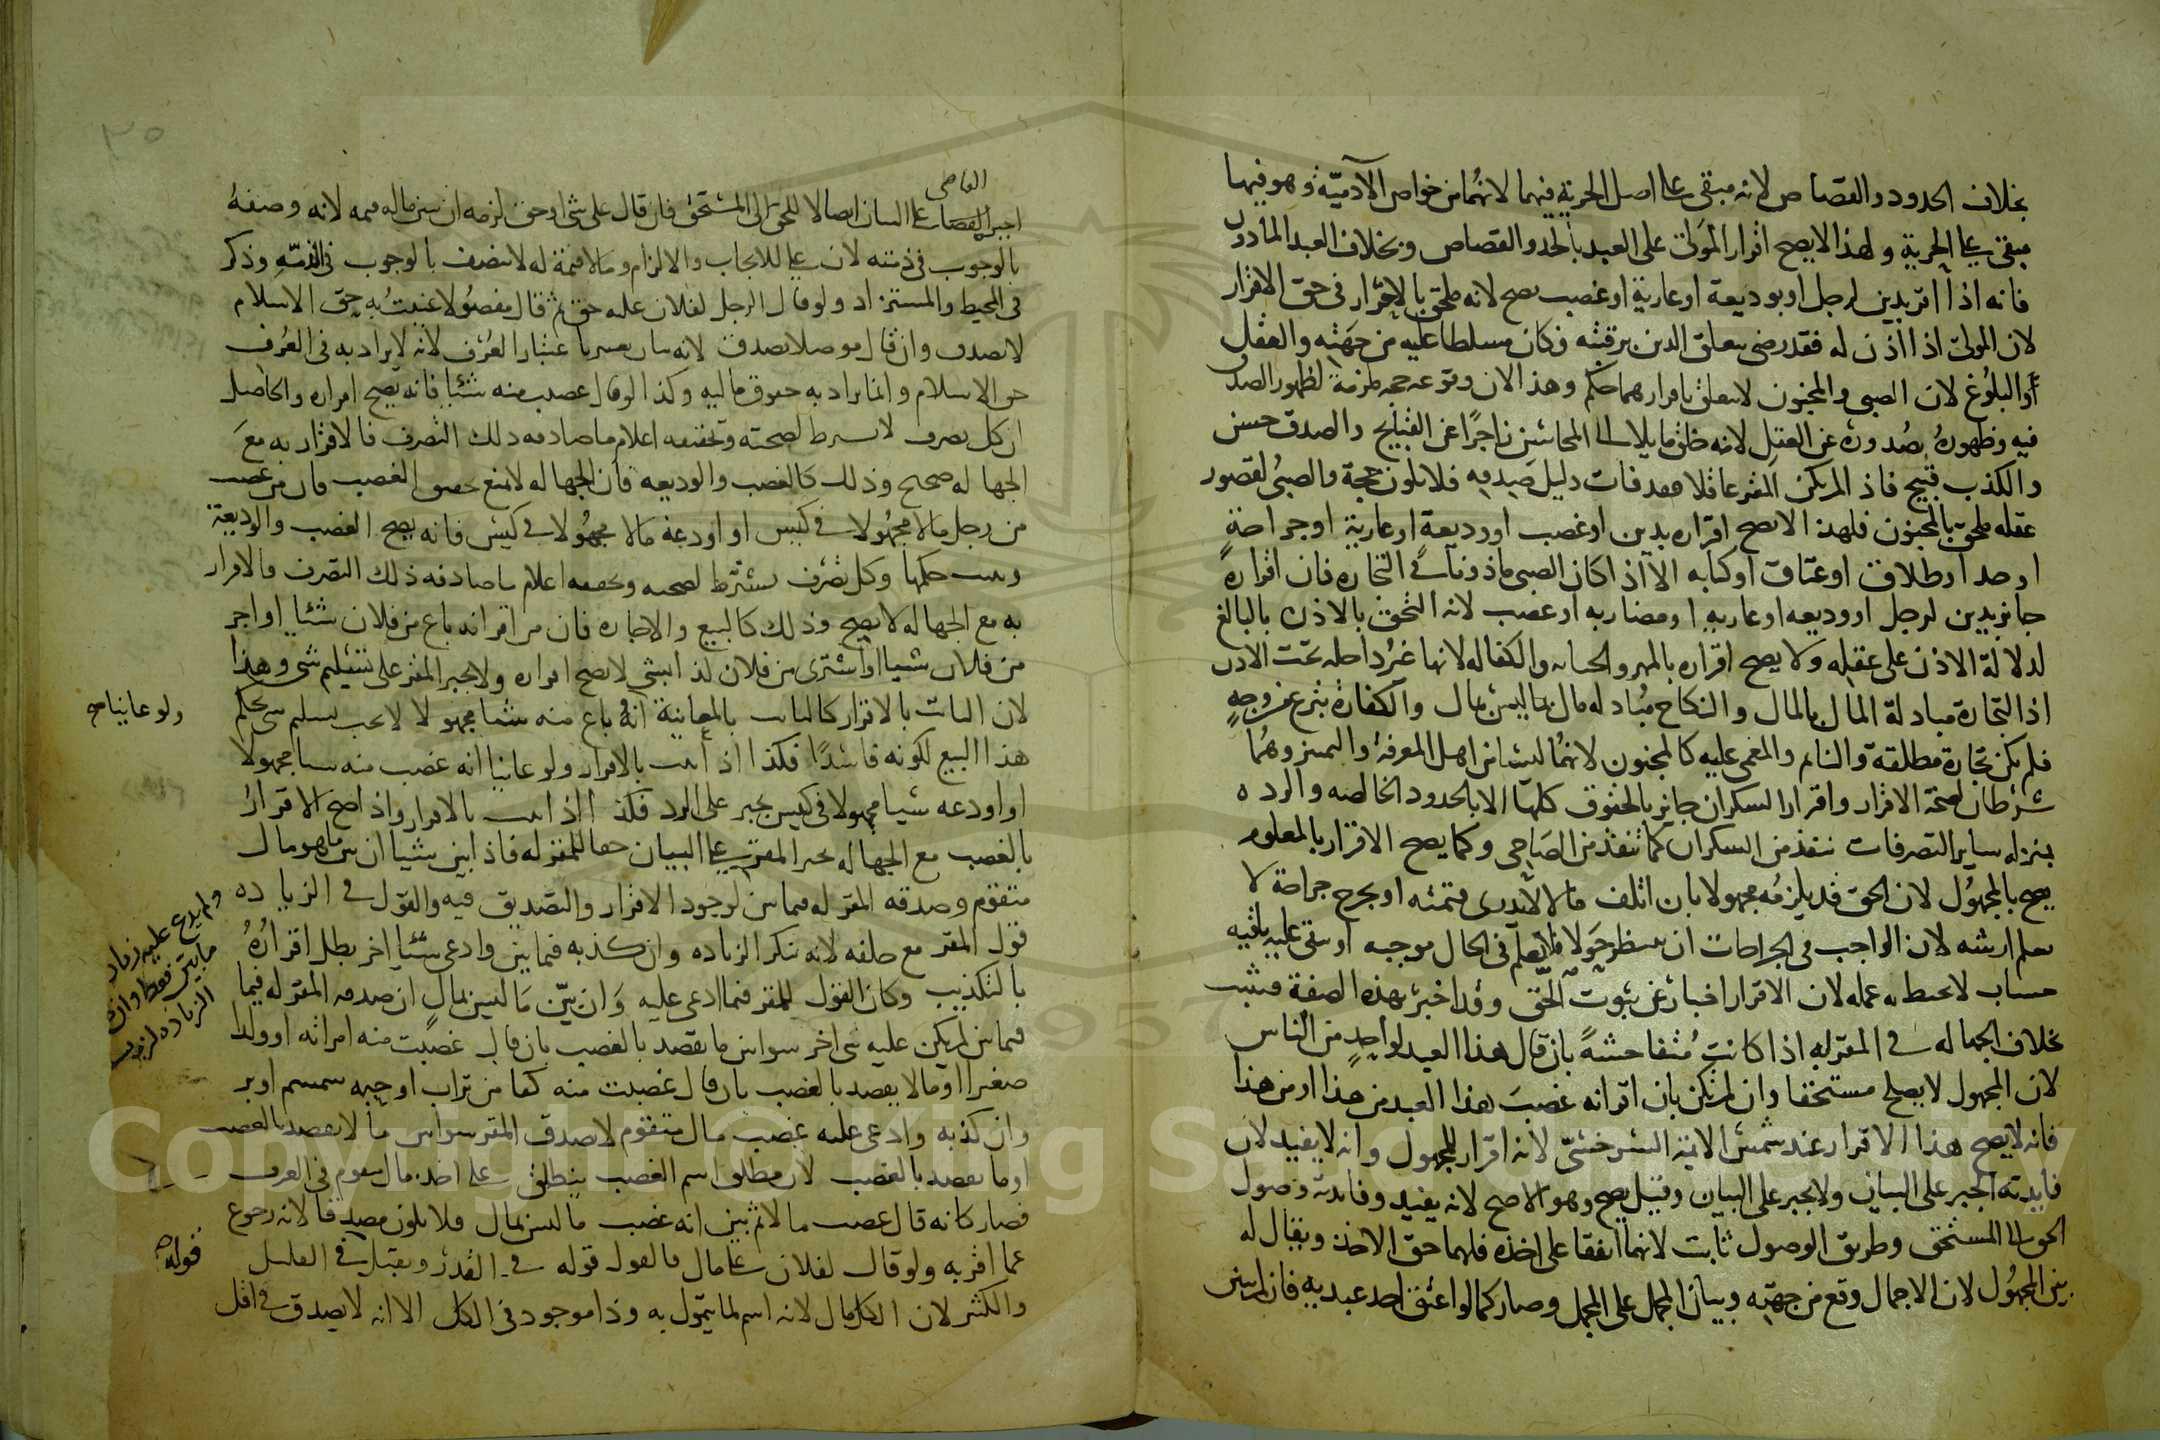 بخلاف الحدود والقصاص لانه مبقى على اصل الحرية فيهما لانهما من خواص الآدمية وهو فيهما
مبقى على الحرية ولهذا لا يصح اقرار المولى على العبد بالحد والقصاص وبخلاف العبد المأذون
فانه اذا اقر بدين لرجل او بوديعة او عارية او غصب يصح لانه ملحق بالاحرار في حق الاقرار
لان المولى اذا اذن له فقد رضي بتعلق الدين برقبته فكان مسلطا عليه من جهته والعقل
والبلوغ لان الصبي والمجنون لا يتعلق باقرارهما حكم وهذا لان وقوعه حجة ملزمة لظهور الصدق
فيه وظهوره بصدوره عن العقل لانه خلق مايلا الى المحاسن زاجرا عن القبايح والصدق حسن
والكذب قبيح فاذا لم يكن المقر عاقلا فقد فات دليل صدقه فلا يكون حجة والصبي لقصور
عقله ملحق بالمجنون فلهذا لا يصح اقراره بدين او غصب او وديعة او عارية او جراحة
او حد او طلاق او عتاق او كتابه الا اذا كان الصبي ماذونا في التجارة فان اقراره
جايز بدين لرجل او وديعه او عاريه او مضاربه او غصب لانه التحق بالاذن بالبالغ
لدلالة الاذن على عقله ولا يصح اقراره بالمهر والجناية والكفالة لانها غير داخلة تحت الاذن
اذ التجارة مبادلة المال بالمال والنكاح مبادلة مال بما ليس بمال والكفالة تبرع من وجه
فلم يكن تجارة مطلقة والنايم والمغمى عليه كالمجنون لانهما ليسا من اهل المعرفة والتميز وهما
شرطان لصحة الاقرار واقرار السكران جايز بالحقوق كلها الا بالحدود الخالصه والرده
بمنزله ساير التصرفات تنفذ من السكران كما تنفذ من الصاحي وكما يصح الاقرار بالمعلوم
يصح بالمجهول لان الحق قد يلزمه مجهولا بان اتلف مالا لا يدرى قيمته او يجرح جراحة لا
يعلم ارشه لان الواجب في الجراحات ان ينتظر حولا فلا يعلم في الحال موجبه او بقي عليه بقيه
حساب لا يحيط به علمه لان الاقرار اخبار عن ثبوت الحق وقد اخبر بهذه الصفة فيثبت
بخلاف الجهاله في المقر له اذا كانت متفاحشة بان قال هذا العبد لواحد من الناس
لان المجهول لا يصلح مستحقا وان لم يكن بان اقر انه غصب هذا العبد من هذا او من هذا
فانه لا يصح هذا الاقرار عند شمس الايمة السرخسي لانه اقرار للمجهول وانه لا يفيد لان
فايدته الجبر على البيان ولا يجبر على البيان وقيل يصح وهو الاصح لانه يفيد وفايدته وصول
الحق الى المستحق وطريق الوصول ثابت لانهما اتفقا على اخذه فلهما حق الاخذ ويقال له
بين المجهول لان الاجمال وقع من جهته وبيان المجمل على المجمل وصار كما لو اعتق احد عبديه فان لم يبين
القاضي
اجبره القضا على البيان ايصالا للحق الى المستحق فان قال علي شي او حق لزمه ان يبين ماله قيمه لانه وصفه
بالوجوب في ذمته لان علي للايجاب والالزام وما لا قيمة له لا يتصف بالوجوب في الذمة وذكر
في المحيط والمستزاد ولو قال الرجل لفلان عليه حق ثم قال مفصولا عنيت به حق الاسلام
لا يصدق وان قال موصولا يصدق لانه بيان يعتبر باعتبار العرف لانه لا يراد به في العرف
حق الاسلام وانما يراد به حقوق ماليه وكذا لو قال غصبت منه شيئا فانه يصح اقراره والحاصل
ان كل تصرف لا يشترط لصحته وتحققه اعلام ما صادفه ذلك التصرف فالاقرار به مع
الجهاله صحيح وذلك كالغصب والوديعه فان الجهاله لا تمنع تحقق الغصب فان من غصب
من رجل مالا مجهولا في كيس او اودعه مالا مجهولا في كيس فانه يصح الغصب والوديعة
ويثبت حكمها وكل تصرف يشترط لصحته وتحققه اعلام ما صادفه ذلك التصرف فالاقرار
به مع الجهاله لا يصح وذلك كالبيع والاجاره فان من اقر انه باع من فلان شيئا او اجر
من فلان شيا او اشترى من فلان كذا بشي لا يصح اقراره ولا يجبر المقر على تسليم شي وهذا
لان الثابت بالاقرار كالثابت بالمعاينة انه باع منه شيئا مجهولا لا يجب تسليم شي بحكم
هذا البيع لكونه فاسدا فكذا اذا ثبت بالاقرار ولو عاينا انه غصب منه شيا مجهولا
او اودعه شيا مجهولا في كيس يجبر على الرد فكذا اذا ثبت بالاقرار واذا صح الاقرار
بالغصب مع الجهاله يجبر المقر على البيان حقا للمقر له فاذا بين شيا ان بين ما هو مال
متقوم وصدقه المقر له فيما بين لوجود الاقرار والتصديق فيه والقول في الزياده
قول المقر مع حلفه لانه ينكر الزياده وان كذبه فيما بين وادعى شيئا اخر بطل اقراره
بالتكذيب وكان القول للمقر فيما ادعى عليه وان بين ما ليس بمال ان صدقه المقر له فيما
فيما بين لم يكن عليه شي اخر سوا بين ما يقصد بالغصب بان قال غصبت منه امراته او ولدا
صغيرا او ما لا يقصد بالغصب بان قال غصبت منه كفا من تراب او حبه سمسم او بر
وان كذبه وادعى عليه غصب مال متقوم لا يصدق المقر سوا بين ما لا يقصد بالغصب
او ما يقصد بالغصب لان مطلق اسم الغصب ينطلق على اخذ مال متقوم في العرف
فصار كانه قال غصبت مالا ثم بين انه غصب ما ليس بمال فلا يكون مصدقا لانه رجوع
عما اقر به ولو قال لفلان علي مال فالقول قوله في القدر ويقبل في القليل
والكثير لان الكل مال لانه اسم لما يتمول به وذا موجود في الكل الا انه لا يصدق في اقل
ولو عاينا صح
ولم يدع عليه زياد
ما بين فقط وان
الزياده لزم
قوله
٣٥
Copyright © King Saud University
1957